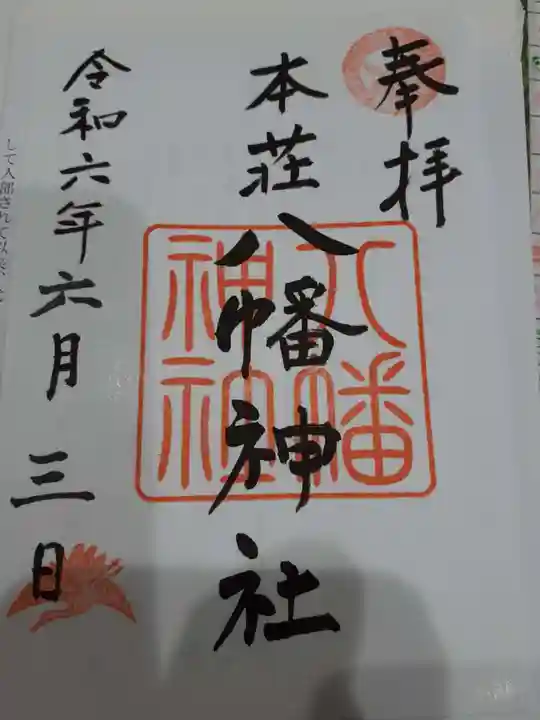 奉拝
本荘八幡神社
八幡
神社
令和六年六月三日
して入部されて以来、